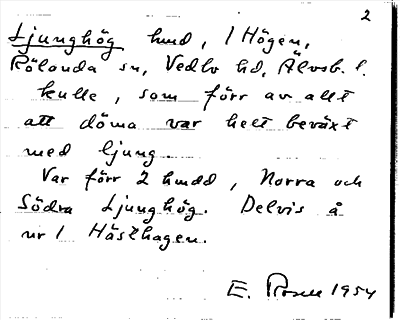 2
Ljunghög hmd, 1 Högen,
Rölanda sn, Vedbo hd, Älvsb. l.
Kulle, som förr av allt
att döma var helt beväxt
med ljung.
Var förr 2 hmdd, Norra och
Södra Ljunghög. Delvis å
nr 1 Hästhagen.
E. Rosell 1954